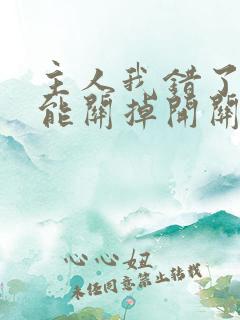 主人我错了
能關掉開關
心心妞
未经同意禁止转载